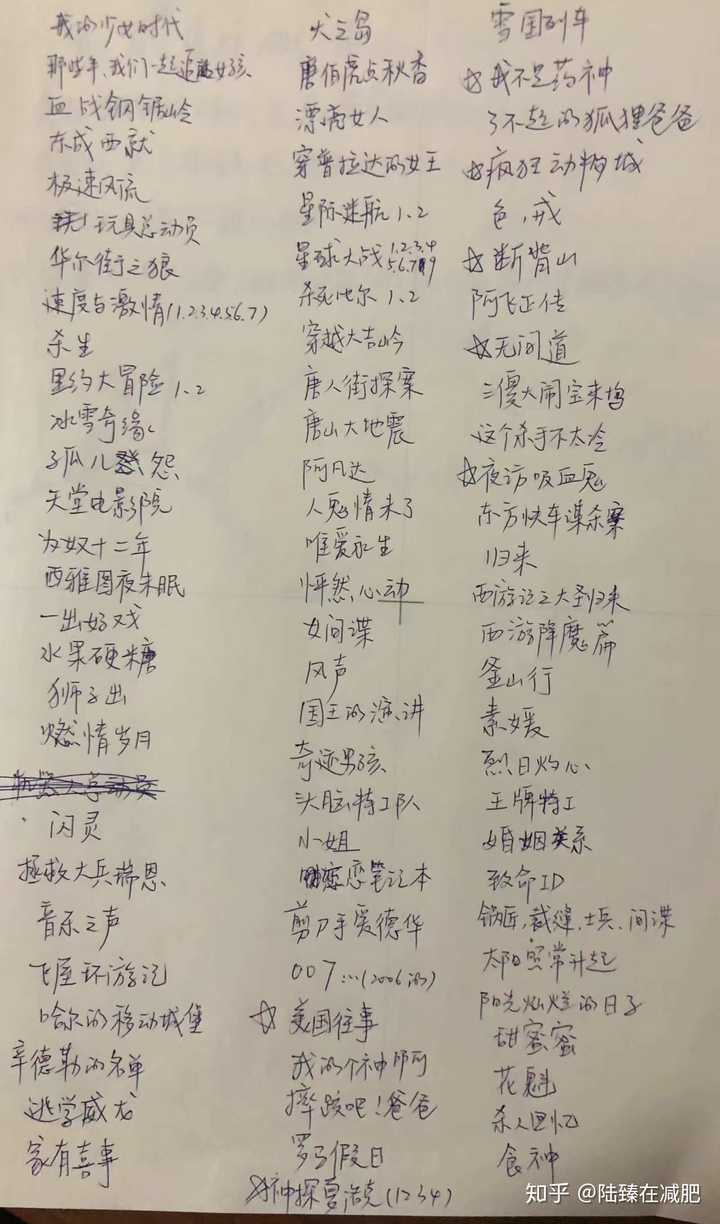 我的少女时代
那些年,我们一起追的女孩.
血战钢锯岭
东成西就
极速风流
玩具总动员
华尔街之狼
速度与激情(1.2.3.4.5.6.7)
杀生
里约大冒险1、2
冰雪奇缘
孤儿怨
天堂电影院
为奴十二年
西雅图夜未眠
一出好戏
水果硬糖
狮子山
燃情岁月
机器人总动员
闪灵
拯救大兵瑞恩
音乐之声
飞屋环游记
哈尔的移动城堡
辛德勒的名单
逃学威龙
家有喜事
犬之岛
唐伯虎点秋香
漂亮女人
穿普拉达的女王
星际迷航1.2
星球大战1.2.3.4
5.6.7.8.9
杀死比尔1.2
穿越大吉岭
唐人街探案
唐山大地震
阿凡达
人鬼情未了
唯爱永生
怦然心动
女间谍
风声
国王的演讲
奇迹男孩
头脑特工队
小姐
恋恋笔记本
剪刀手爱德华
007…(2006的)
☆美国往事
我的个神啊
摔跤吧!爸爸
罗马假日
☆神探夏洛克(1234)
雪国列车
☆我不是药神
了不起的狐狸爸爸
☆疯狂动物城
色,戒
☆断背山
阿飞正传
☆无间道
三傻大闹宝莱坞
这个杀手不太冷
☆夜访吸血鬼
东方快车谋杀案
归来
西游记之大圣归来
西游降魔篇
釜山行
素媛
烈日灼心
王牌特工
婚姻关系
致命ID
锅匠,裁缝,士兵、间谍
太阳照常升起
阳光灿烂的日子
甜蜜蜜
花魁
杀人回忆
食神
知乎 @陆臻在减肥